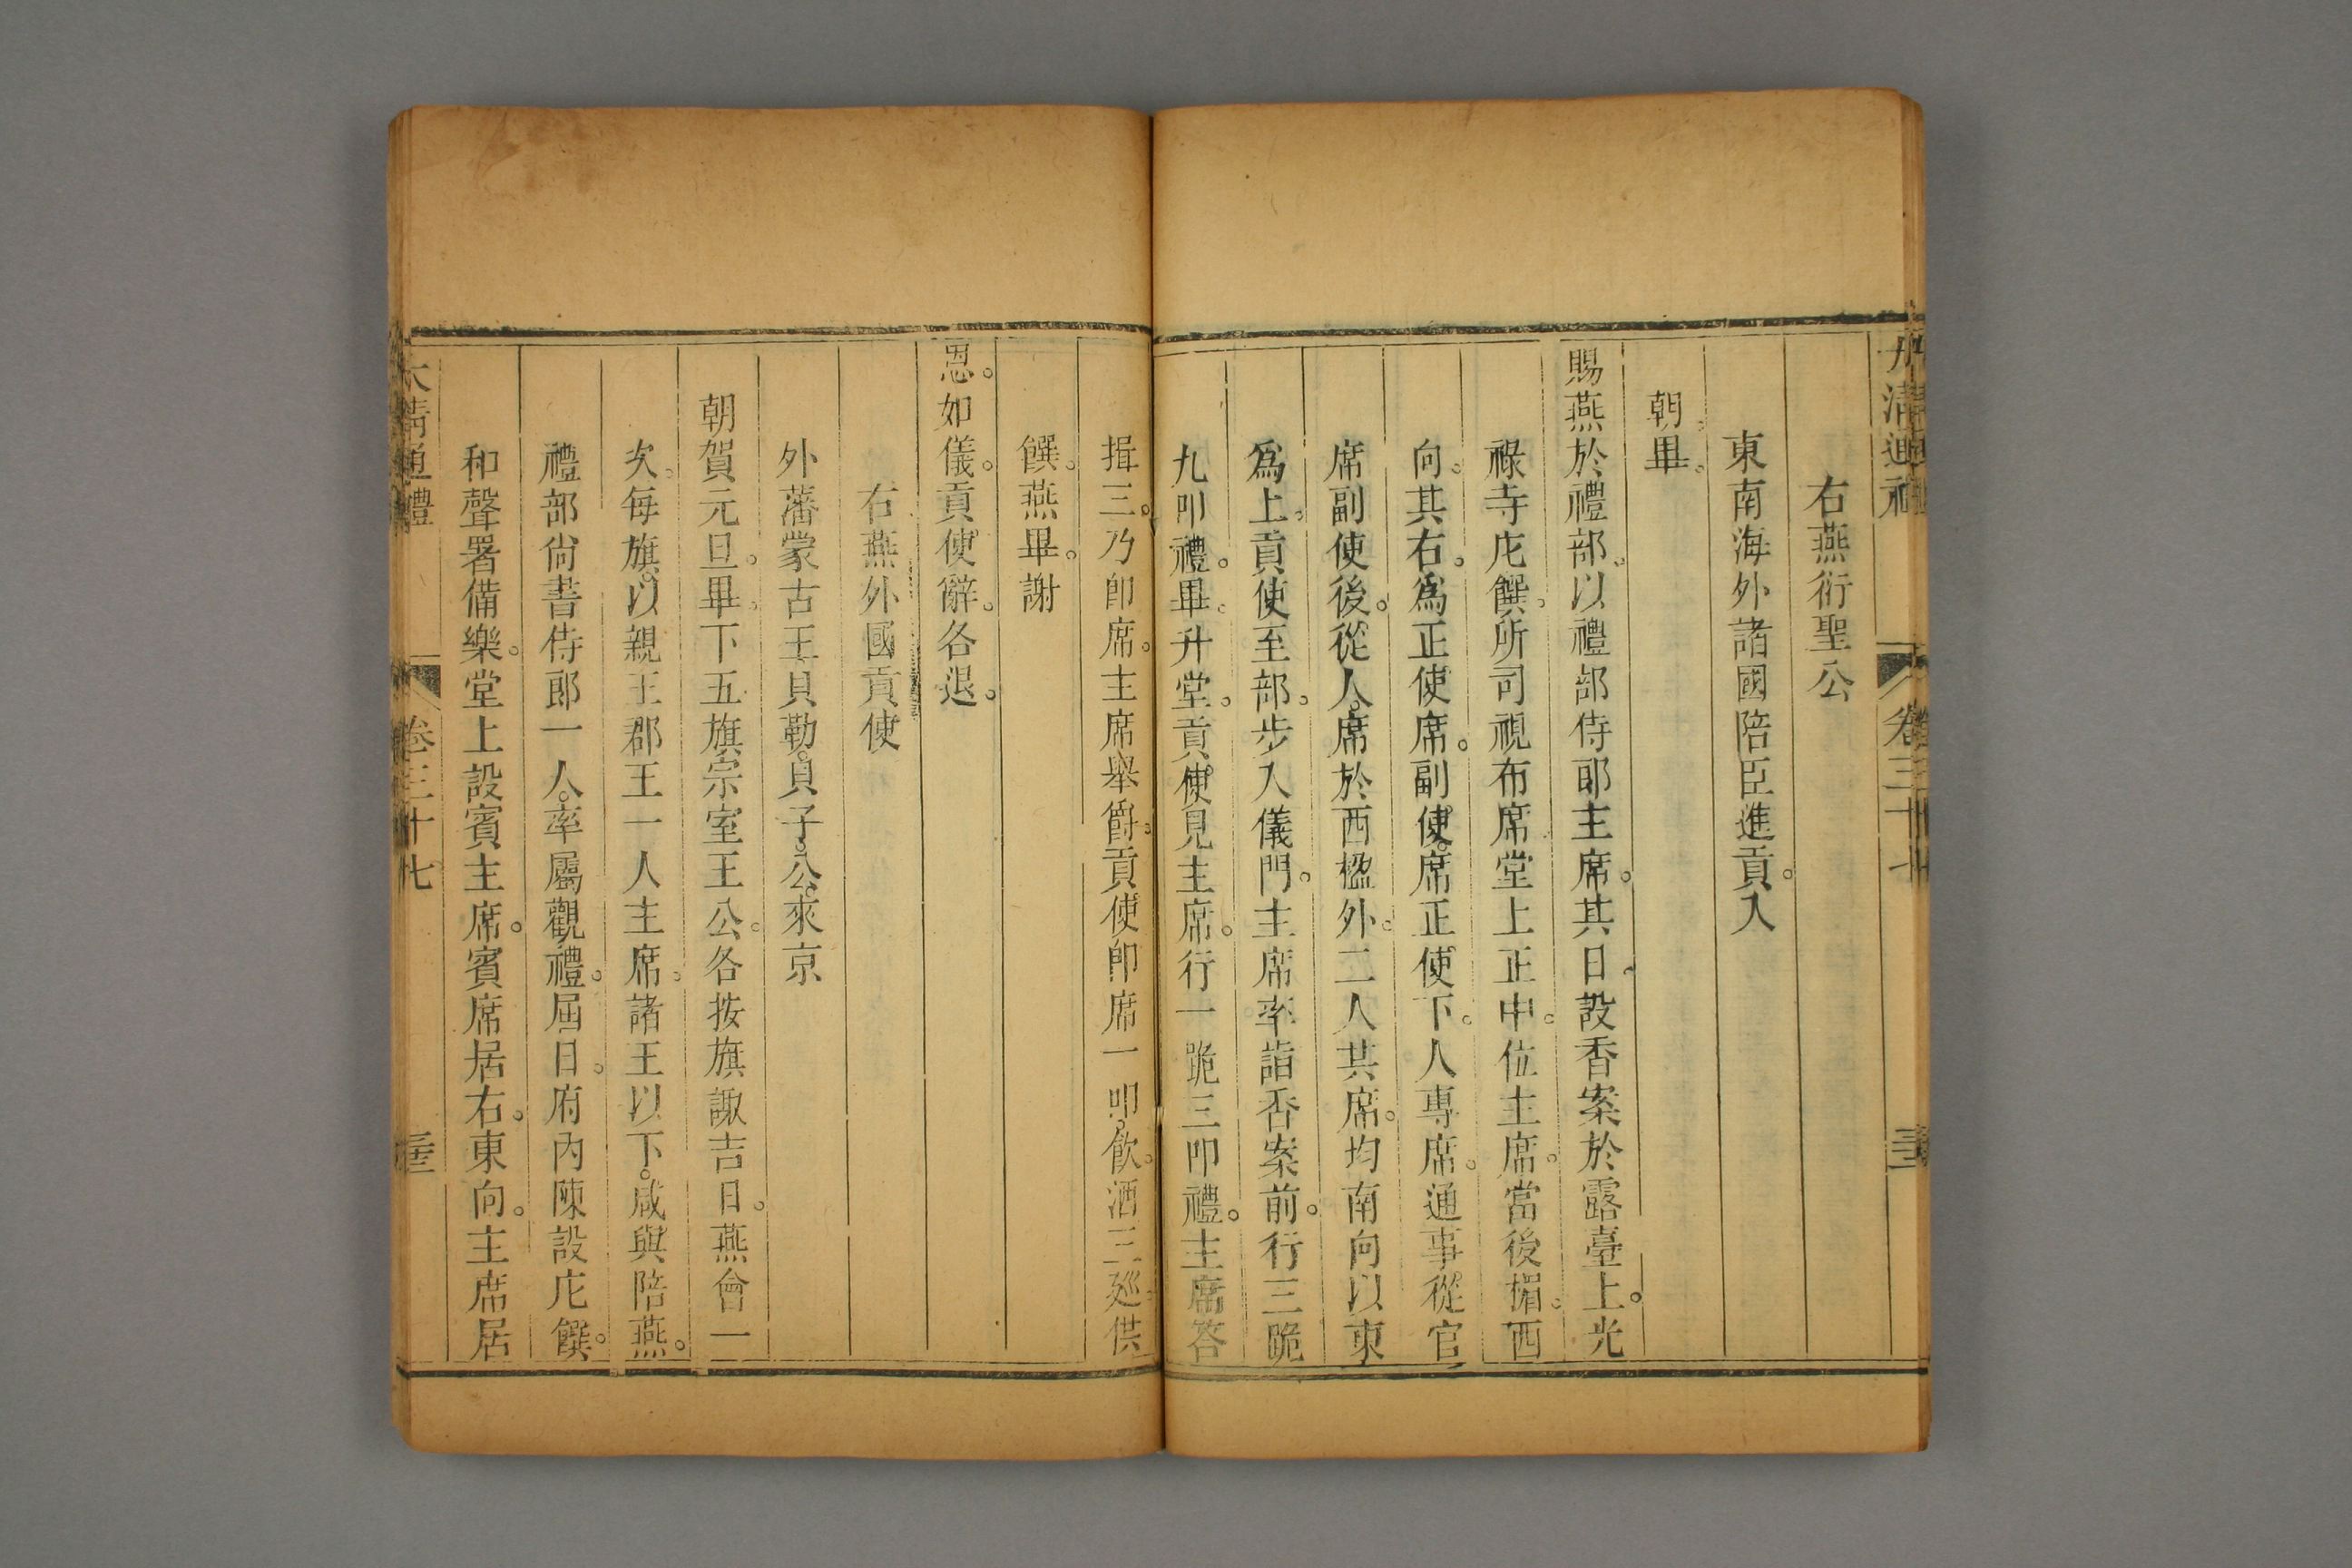 大清通禮 卷三十七
右燕衍聖公
東南海外諸國陪臣進貢。入
朝。畢。
賜燕於禮部。以禮部侍郎主席。其日。設香案於露臺上。光
祿寺庀饌。所司視布席堂上正中。位主席。當後楣。西
向。其右。爲正使席。副使。席正使下。人專席。通事從官
席副使後。從人。席於西楹外。二人共席。均南向以東
爲上。貢使至部。步入儀門。主席率詣香案前。行三跪
九叩禮。畢。升堂。貢使見主席。行一跪三叩禮。主席答
揖三。乃卽席。主席舉爵。貢使卽席一叩。飲。酒三廵。供
饌。燕畢。謝
恩。如儀。貢使辭。各退。
右燕外國貢使
外藩蒙古王貝勒。貝子。公。來京
朝賀元旦。畢。下五旗宗室王公。各按旗諏吉日。燕會一
次。每旗。以親王郡王一人主席。諸王以下。咸與陪燕。
禮部尙書侍郎一人。率屬觀禮。屆日。府內陳設庀饌。
和聲署備樂。堂上設賓主席。賓席居右。東向。主席居
大清通禮 卷三十七